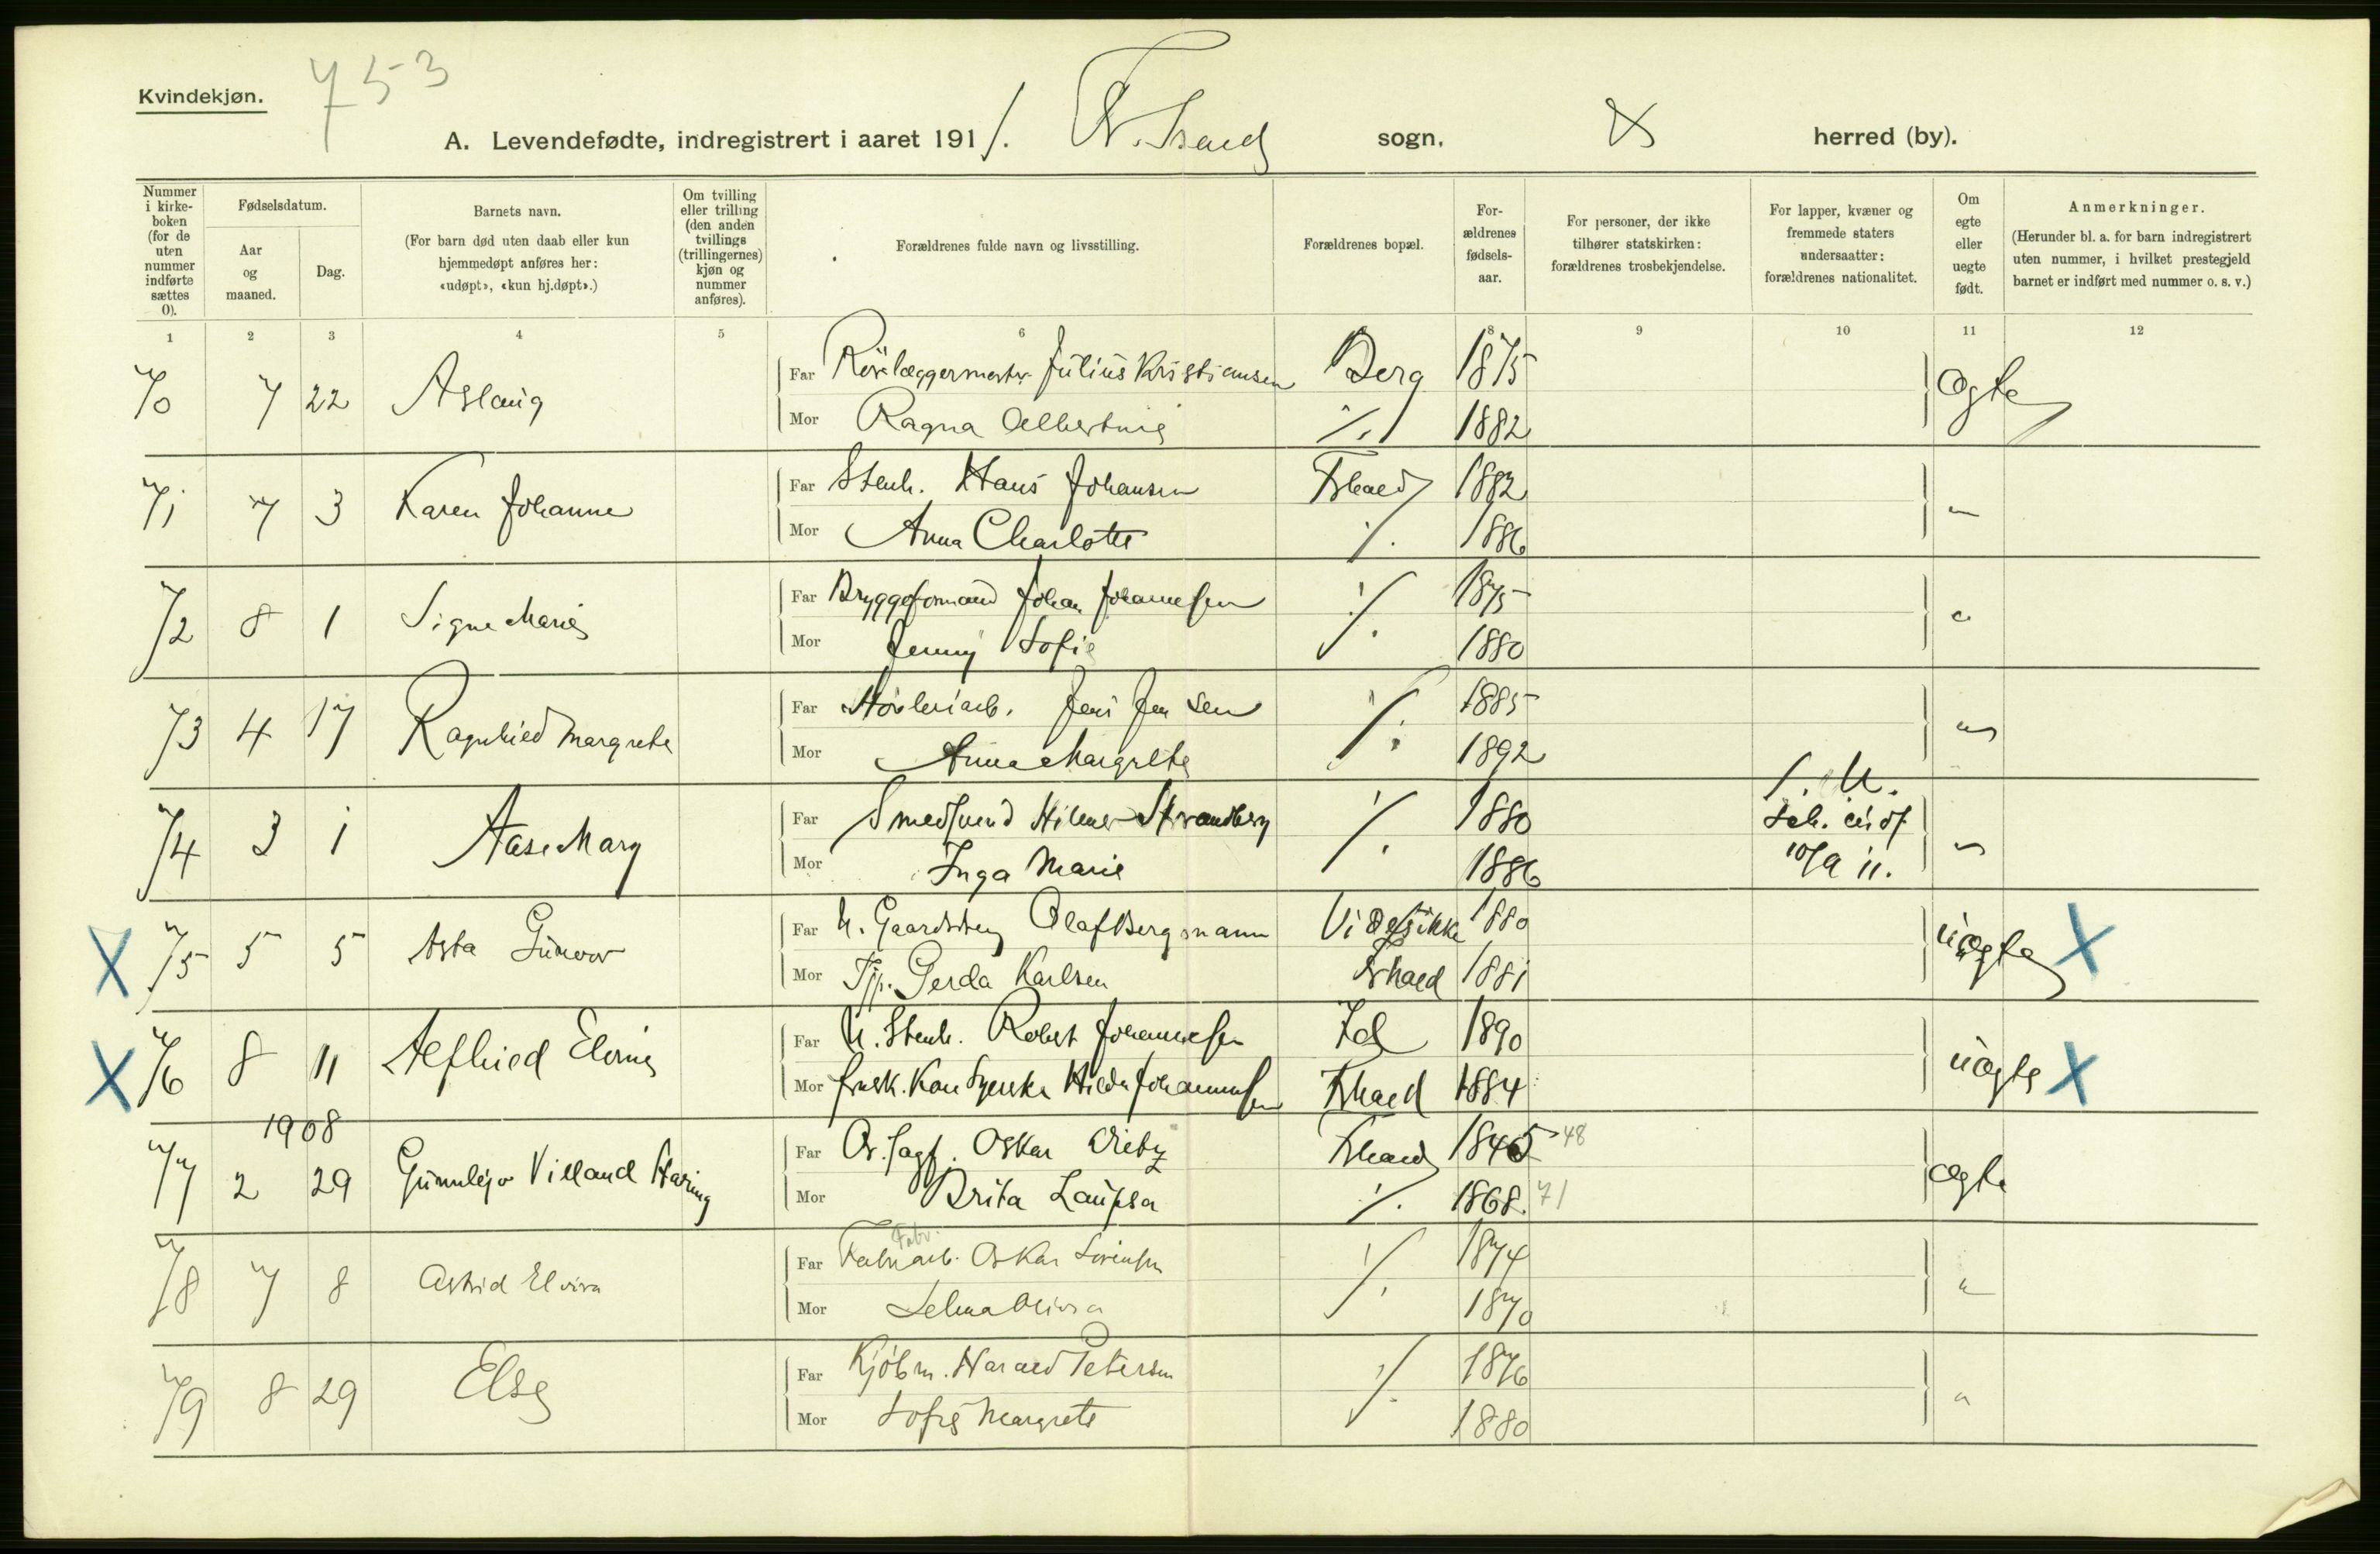 Kvindekjøn.
753
A. Levendefødte, indregistrert i aaret 1911. sogn. herred (by).
Nummer i kirke-boken (for de uten nummer indførte sættes 0).
Fødselsdatum.
Aar og maaned.
Dag.
Barnets navn.
(For barn død uten daab eller kun hjemmedøpt anføres her: «udøpt», «kun hj.døpt».)
Om tvilling eller trilling (den anden tvillings (trillingernes) kjøn og nummer anføres).
Forældrenes fulde navn og livsstilling.
Forældrenes bopæl.
For-ældrenes fødsels-aar.
For personer, der ikke tilhører statskirken: forældrenes trosbekjendelse.
For lapper, kvæner og fremmede staters undersaatter: forældrenes nationalitet.
Om egte eller uegte født.
Anmerkninger.
(Herunder bl. a. for barn indregistrert uten nummer, i hvilket prestegjeld barnet er indført med nummer o. s. v.)
1 2 3 4 5 6 8 9 10 11 12
70 7 22 Aslaug Far Rörlæggermester Julius Kristiansen Berg 1875 Ægte
Mor Ragna 1882
71 7 3 Karen Johanne Far Stenh. Hans Johansen Fshald 1882 "
Mor Anna Charlotte 1886
72 8 1 Signe Marie Far Bryggeformand Johan Johannesen 1875 "
Mor Jenny Sofie 1880
73 4 17 Ragnhild Margrete Far Hövleriarb. Jens Jensen 1885 "
Mor Anna Margrete 1892
74 3 1 Aase Mary Far Smedsvend Hilmer Strandberg 1880 "
Mor Inga Marie 1886 10/9 11.
X 75 5 5 Asta Gunvor Far U. Gaardsbr. Olaf Bergmann 1880 Uægte X
Mor Tjp. Gerda Karlsen Fshald 1881
X 76 8 11 Alfhild Far U. Stenh. Robert Johannesen Id 1890 Uægte X
Mor Hilda Johannessen Fshald 1884
1908
77 2 29 Villand Far O. Sagf. Oskar Fshald 1845 48 Ægte
Mor Brita Laupsa % 1868. 71
78 7 8 Astrid Elvira Far Fabrarb. Fabr. Oskar Sörensen 1874 "
Mor Selma 1870
79 8 29 Else Far Kjöbm. Harald Petersen 1876 "
Mor Sofie Margrete 1880